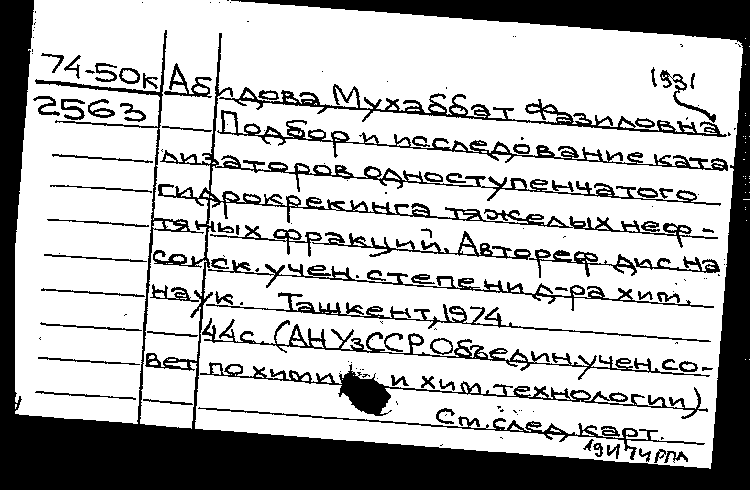 1931
74-50к Абидова, Мухаббат Фазиловна.
2563 Подбор и исследование ката-
лизаторов одноступенчатого
гидрокрекинга тяжелых неф-
тяных фракций. Автореф. дис. на
соиск. учен. степени д-ра хим.
наук. Ташкент, 1974.
44с. (АН УзССР. Объедин. учен. со-
вет по химии и хим. технологии)
См. след. карт.